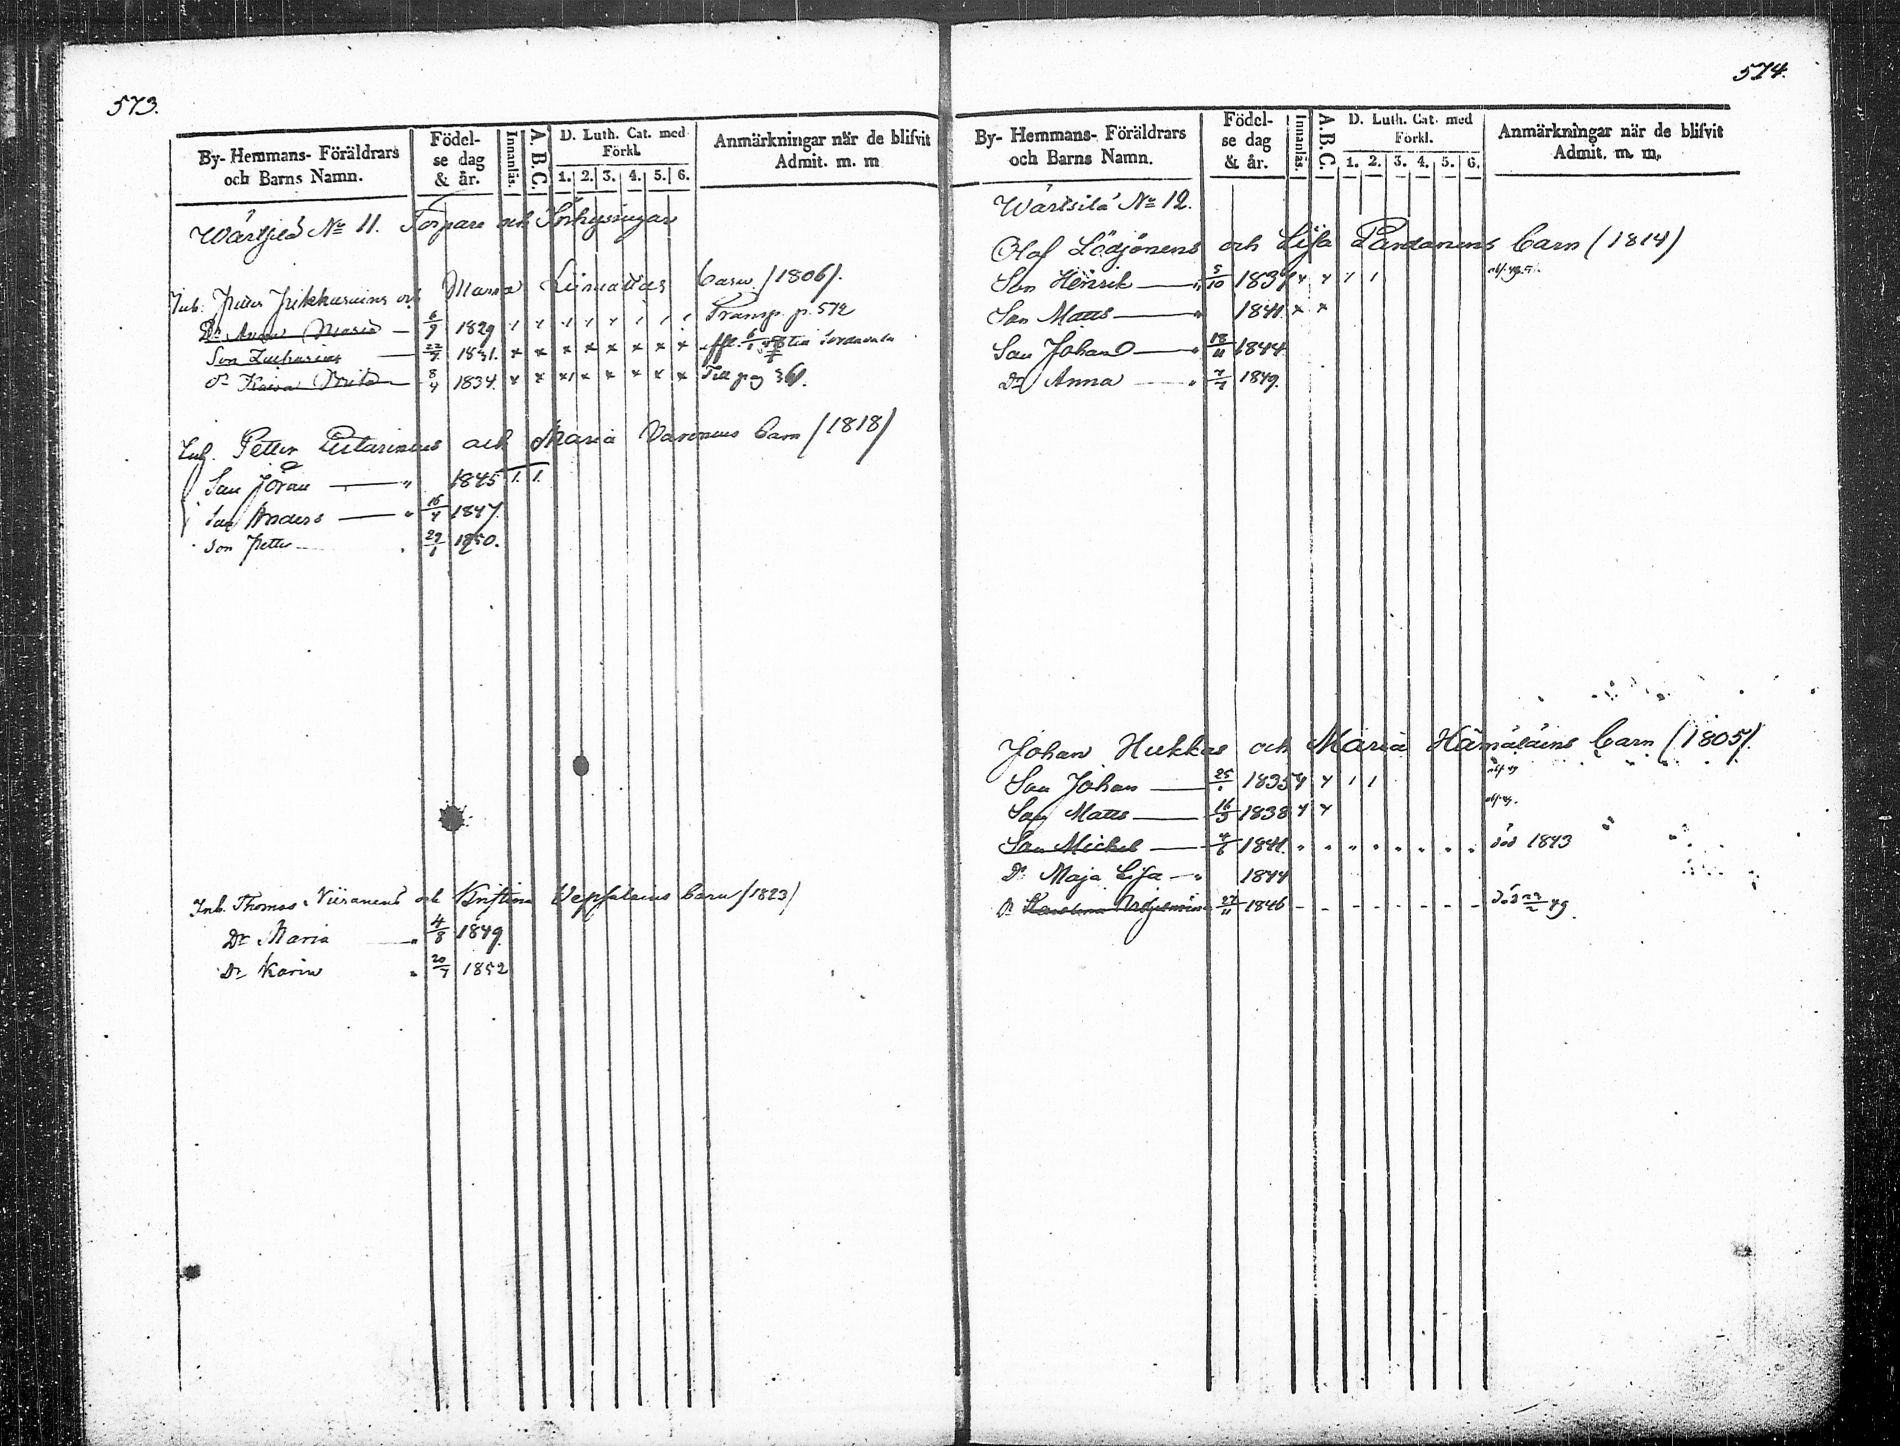 573.
By- Hemmans- Föräldrars och Barns Namn.
Födel- se dag & år.
Innanläs.
A. B. C.
D. Luth. Cat. med Förkl.
1. 2. 3. 4. 5. 6.
Anmärkningar när de blifvit Admit. m. m
Wärtsilä No 11. Torpare och Inhysingar
Inh. Petter och Maria Liimattas barn (1806).
Dr Anna Maria 6/9 1829 Transp. p. 572
Son Zacharias 22/7 1831.
Dr Kaisa Brita 8/4 1834. Till pag 361.
Inh. Petter och Maria barn (1818)
Son Jöran 1845
Son Anders 16/4 1847
Son Petter 29/1 1850.
Inh. Thomas Niiranens och Kristina Vepsäläins barn (1823)
Dr Maria 4/8 1849.
Dr Karin 20/7 1852
574.
By- Hemmans- Föräldrars och Barns Namn.
Födel- se dag & år.
Innanläs.
A. B. C.
D. Luth. Cat. med Förkl.
1. 2. 3. 4. 5. 6.
Anmärkningar när de blifvit Admit. m. m.
Wärtsilä No 12.
Olof och Lisa Pardanens barn (1814)
Son Henrik 5/10 1837
Son Matts 1841
Son Johan 18/11 1844
Dr Anna 7/7 1849.
Johan Hukkas och Maria Hämäläins barn (1805).
Son Johan 1835
Son Matts 1838
Son Michel 4/6 1841. död 1843
Dr Maja Lisa 1844
Dr Karolina 27/11 1846 död 22/2 49.